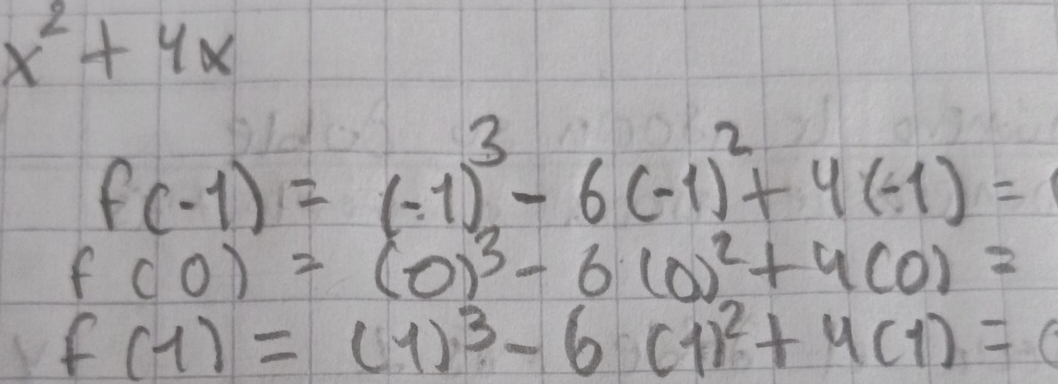 x² + 4x
f(-1) = (-1)³ - 6(-1)² + 4(-1) =
f(0) = (0)³ - 6(0)² + 4(0) =
f(1) = (1)³ - 6(1)² + 4(1) =